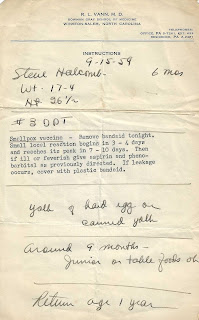 R. L. VANN, M. D.
BOWMAN GRAY SCHOOL OF MEDICINE
WINSTON-SALEM, NORTH CAROLINA
TELEPHONES:
INSTRUCTIONS
9-15-59
Steve Halcomb- 6 mos
Wt- 17-4
Ht 26½-
#3 DPT
Smallpox vaccine - Remove bandaid tonight.
Small local reaction begins in 3 - 4 days
and reaches its peak in 7 - 10 days. Then
if ill or feverish give aspirin and pheno-
barbital as previously directed. If leakage
occurs, cover with plastic bandaid.
yolk of hard egg or
canned yolk
Around 9 months-
Junior or table foods ok
Return age 1 year